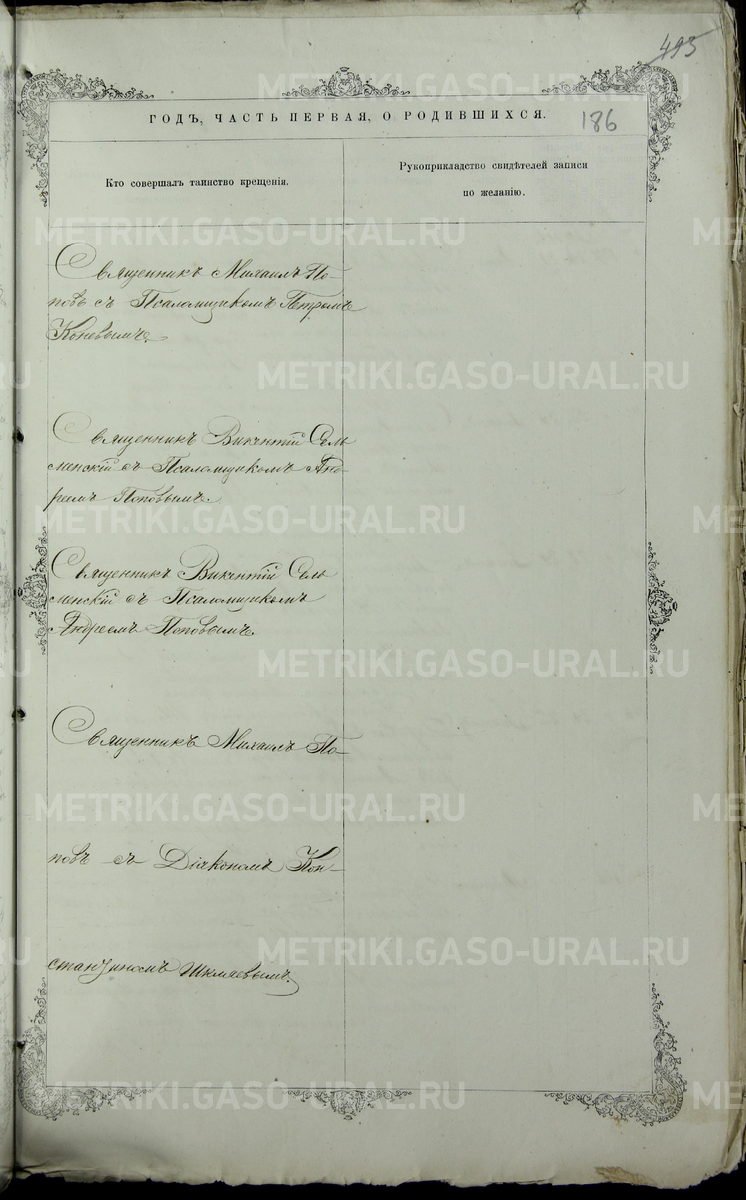 495
METRIKI.GASO-URAL.RU
ГОДЪ, ЧАСТЬ ПЕРВАЯ, О РОДИВШИХСЯ.
186
Кто совершалъ таинство крещенія.
Рукоприкладство свидѣтелей записи
по желанію.
Священникъ Михаилъ По-
повъ съ Псаломщикомъ Петромъ
Коневымъ.
Священникъ Викентій Сель
менскій съ Псаломщикомъ Анд-
реемъ Поповымъ.
Священникъ Викентій Сель
менскій съ Псаломщикомъ
Андреемъ Поповымъ.
Священникъ Михаилъ По-
повъ съ Діакономъ Кон-
стантиномъ